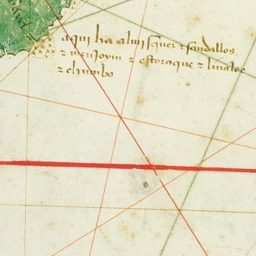 aqui ha almisquer e sandallos
e menjoym e estoraque e linaloe
e chumbo